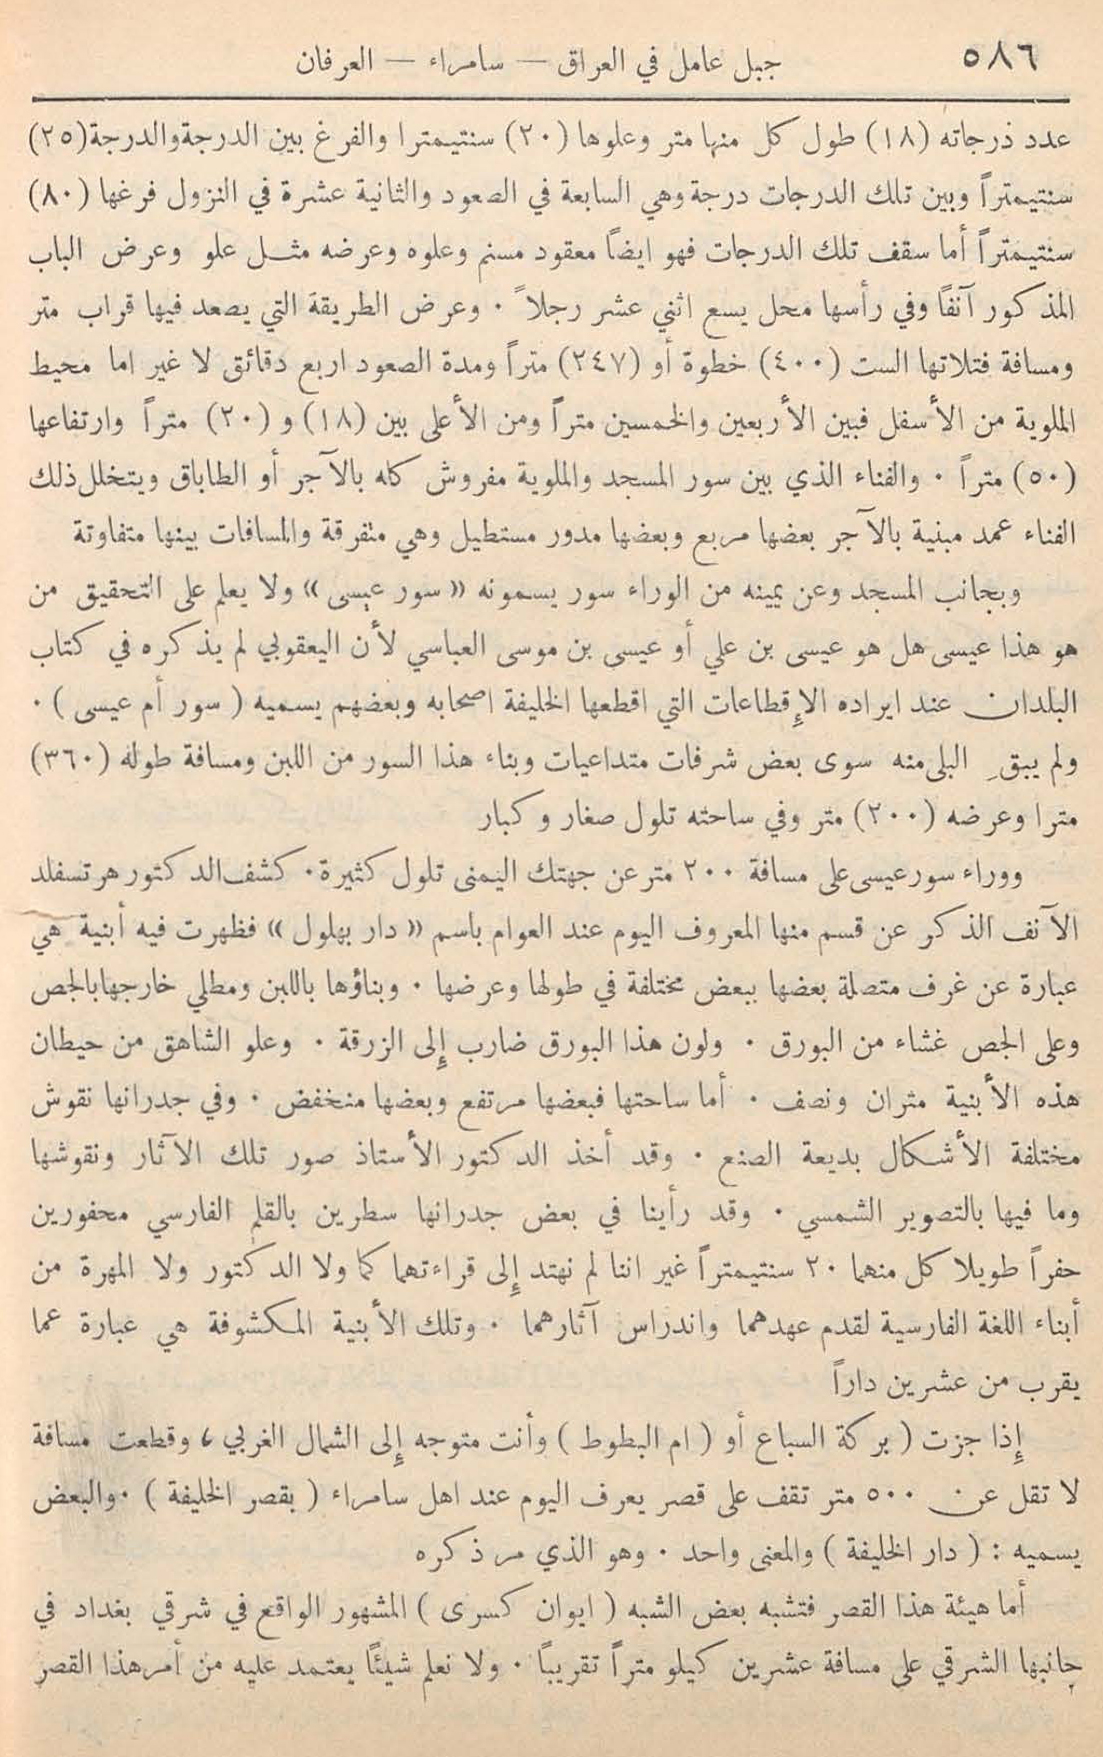 ٥٨٦ جبل عامل في العراق — سامراء — العرفان
عدد ذرجاته (١٨) طول كل منها متر وعلوها (٢٠) سنتيمترا والفرغ بين الدرجة والدرجة (٢٥)
سنتيمتراً وبين تلك الدرجات درجة وهي السابعة في الصعود والثانية عشرة في النزول فرغها (٨٠)
سنتيمتراً أما سقف تلك الدرجات فهو ايضاً معقود مسنم وعلوه وعرضه مثل علو وعرض الباب
المذكور آنفاً وفي رأسها محل يسع اثني عشر رجلاً · وعرض الطريقة التي يصعد فيها قراب متر
ومسافة فتلاتها الست (٤٠٠) خطوة أو (٢٤٧) متراً ومدة الصعود اربع دقائق لا غير اما محيط
الملوية من الأسفل فبين الأربعين والخمسين متراً ومن الأعلى بين (١٨) و (٢٠) متراً وارتفاعها
(٥٠) متراً · والفناء الذي بين سور المسجد والملوية مفروش كله بالآجر أو الطاباق ويتخلل ذلك
الفناء عمد مبنية بالآجر بعضها مربع وبعضها مدور مستطيل وهي متفرقة والمسافات بينها متفاوتة
وبجانب المسجد وعن يمينه من الوراء سور يسمونه «سور عيسى» ولا يعلم على التحقيق من
هو هذا عيسى هل هو عيسى بن علي أو عيسى بن موسى العباسي لأن اليعقوبي لم يذكره في كتاب
البلدان عند ايراده الإقطاعات التي اقطعها الخليفة اصحابه وبعضهم يسميه ( سور أم عيسى ) ·
ولم يبقِ البلى منه سوى بعض شرفات متداعيات وبناء هذا السور من اللبن ومسافة طوله (٣٦٠)
مترا وعرضه (٢٠٠) متر وفي ساحته تلول صغار وكبار
ووراء سور عيسى على مسافة ٢٠٠ متر عن جهتك اليمنى تلول كثيرة · كشف الدكتور هرتسفلد
الآنف الذكر عن قسم منها المعروف اليوم عند العوام باسم «دار بهلول» فظهرت فيه أبنية هي
عبارة عن غرف متصلة بعضها ببعض مختلفة في طولها وعرضها · وبناؤها باللبن ومطلي خارجها بالجص
وعلى الجص غشاء من البورق · ولون هذا البورق ضارب إلى الزرقة · وعلو الشاهق من حيطان
هذه الأبنية متران ونصف · أما ساحتها فبعضها مرتفع وبعضها منخفض · وفي جدرانها نقوش
مختلفة الأشكال بديعة الصنع · وقد أخذ الدكتور الأستاذ صور تلك الآثار ونقوشها
وما فيها بالتصوير الشمسي · وقد رأينا في بعض جدرانها سطرين بالقلم الفارسي محفورين
حفراً طويلا كل منهما ٢٠ سنتيمتراً غير اننا لم نهتد إلى قراءتهما كما ولا الدكتور ولا المهرة من
أبناء اللغة الفارسية لقدم عهدهما واندراس آثارهما · وتلك الأبنية المكشوفة هي عبارة عما
يقرب من عشرين داراً
إذا جزت ( بركة السباع أو ( ام البطوط ) وأنت متوجه إلى الشمال الغربي ، وقطعت مسافة
لا تقل عن ٥٠٠ متر تقف على قصر يعرف اليوم عند اهل سامراء ( بقصر الخليفة ) · والبعض
يسميه : ( دار الخليفة ) والمعنى واحد · وهو الذي مر ذكره
أما هيئة هذا القصر فتشبه بعض الشبه ( ايوان كسرى ) المشهور الواقع في شرقي بغداد في
جانبها الشرقي على مسافة عشرين كيلو متراً تقريباً · ولا نعلم شيئًا يعتمد عليه من أمر هذا القصر